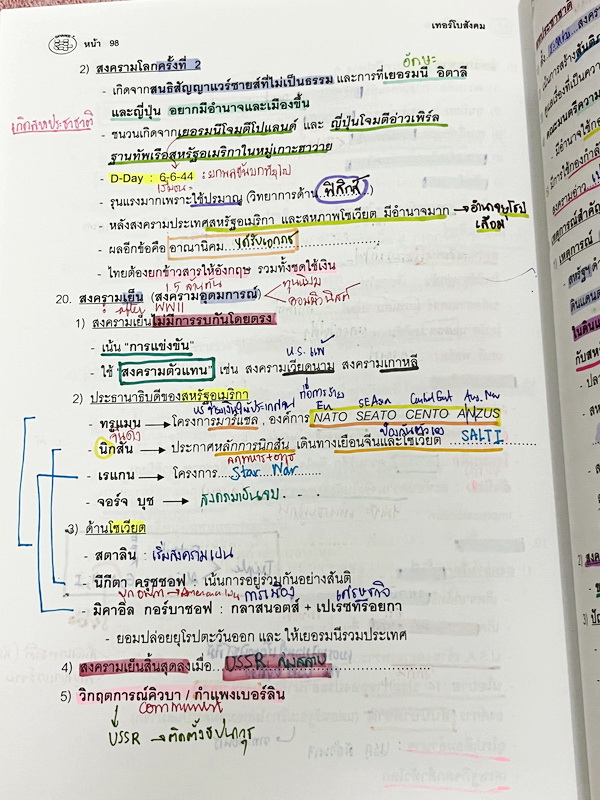 เทอร์โบสังคม
หน้า 98
2) สงครามโลกครั้งที่ 2
อักษะ
- เกิดจากสนธิสัญญาแวร์ซายส์ที่ไม่เป็นธรรม และการที่เยอรมนี อิตาลี
และญี่ปุ่น อยากมีอำนาจและเมืองขึ้น
เกิดสหประชาชาติ
- ชนวนเกิดจากเยอรมนีโจมตีโปแลนด์ และ ญี่ปุ่นโจมตีอ่าวเพิร์ล
ฐานทัพเรือสหรัฐอเมริกาในหมู่เกาะฮาวาย
- D-Day : 6-6-44 :
- รุนแรงมากเพราะใช้ปรมาณู (วิทยาการด้าน ฟิสิกส์)
- หลังสงครามประเทศสหรัฐอเมริกา และสหภาพโซเวียต มีอำนาจมาก → อำนาจยุโรป
เสื่อม
- ผลอีกข้อคือ อาณานิคม ได้รับเอกราช
- ไทยต้องยกข้าวสารให้อังกฤษ รวมทั้งชดใช้เงิน
1.5 ล้านตัน
ทุนนิยม
20. สงครามเย็น (สงครามอุดมการณ์)
คอมมิวนิสต์
after WWII
1) สงครามเย็นไม่มีการรบกันโดยตรง
- เน้น "การแข่งขัน"
U.S. แพ้
- ใช้ "สงครามตัวแทน" เช่น สงครามเวียดนาม สงครามเกาหลี
2) ประธานาธิบดีของสหรัฐอเมริกา
- ทรูแมน → โครงการมาร์แชล, องค์การ NATO SEATO CENTO ANZUS
- นิกสัน → ประกาศหลักการนิกสัน เดินทางเยือนจีนและโซเวียต SALT I
- เรแกน → โครงการ Star War
- จอร์จ บุช → สงครามเย็นจบ
3) ด้านโซเวียต
- สตาลิน : เริ่มสงครามเย็น
- นิกีตา ครุชชอฟ : เน้นการอยู่ร่วมกันอย่างสันติ
การเมือง เศรษฐกิจ
- มิคาอิล กอร์บาชอฟ : กลาสนอตส์ + เปเรซทรอยกา
- ยอมปล่อยยุโรปตะวันออก และ ให้เยอรมนีรวมประเทศ
4) สงครามเย็นสิ้นสุดลงเมื่อ USSR ล่มสลาย
5) วิกฤตการณ์คิวบา / กำแพงเบอร์ลิน
communist
USSR → ติดตั้งขีปนาวุธ